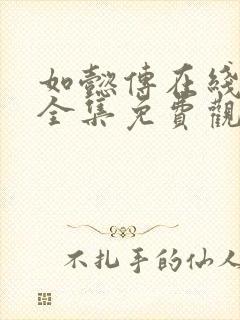 如懿傳在綫
全集免費觀
不扎手的仙人